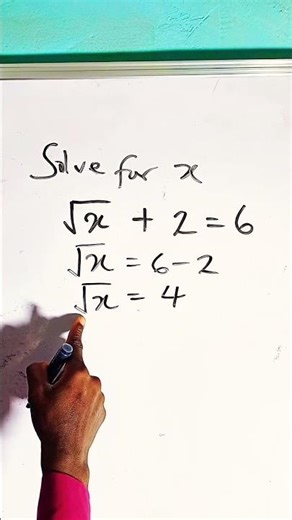 Solve for x
√x + 2 = 6
√x = 6 - 2
√x = 4